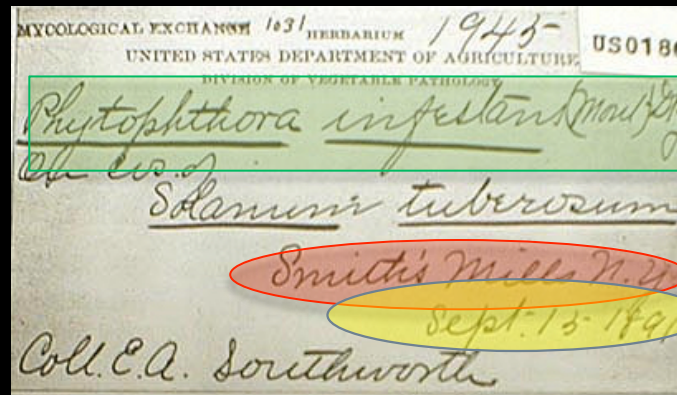 MYCOLOGICAL EXCHANGE 1031 HERBARIUM 1945
US018
UNITED STATES DEPARTMENT OF AGRICULTURE
DIVISION OF VEGETABLE PATHOLOGY
Phytophthora infestans (Mont)
On lvs. of
Solanum tuberosum
Smith's Mills N.Y.
Sept. 15 189
Coll. E.A. Southworth